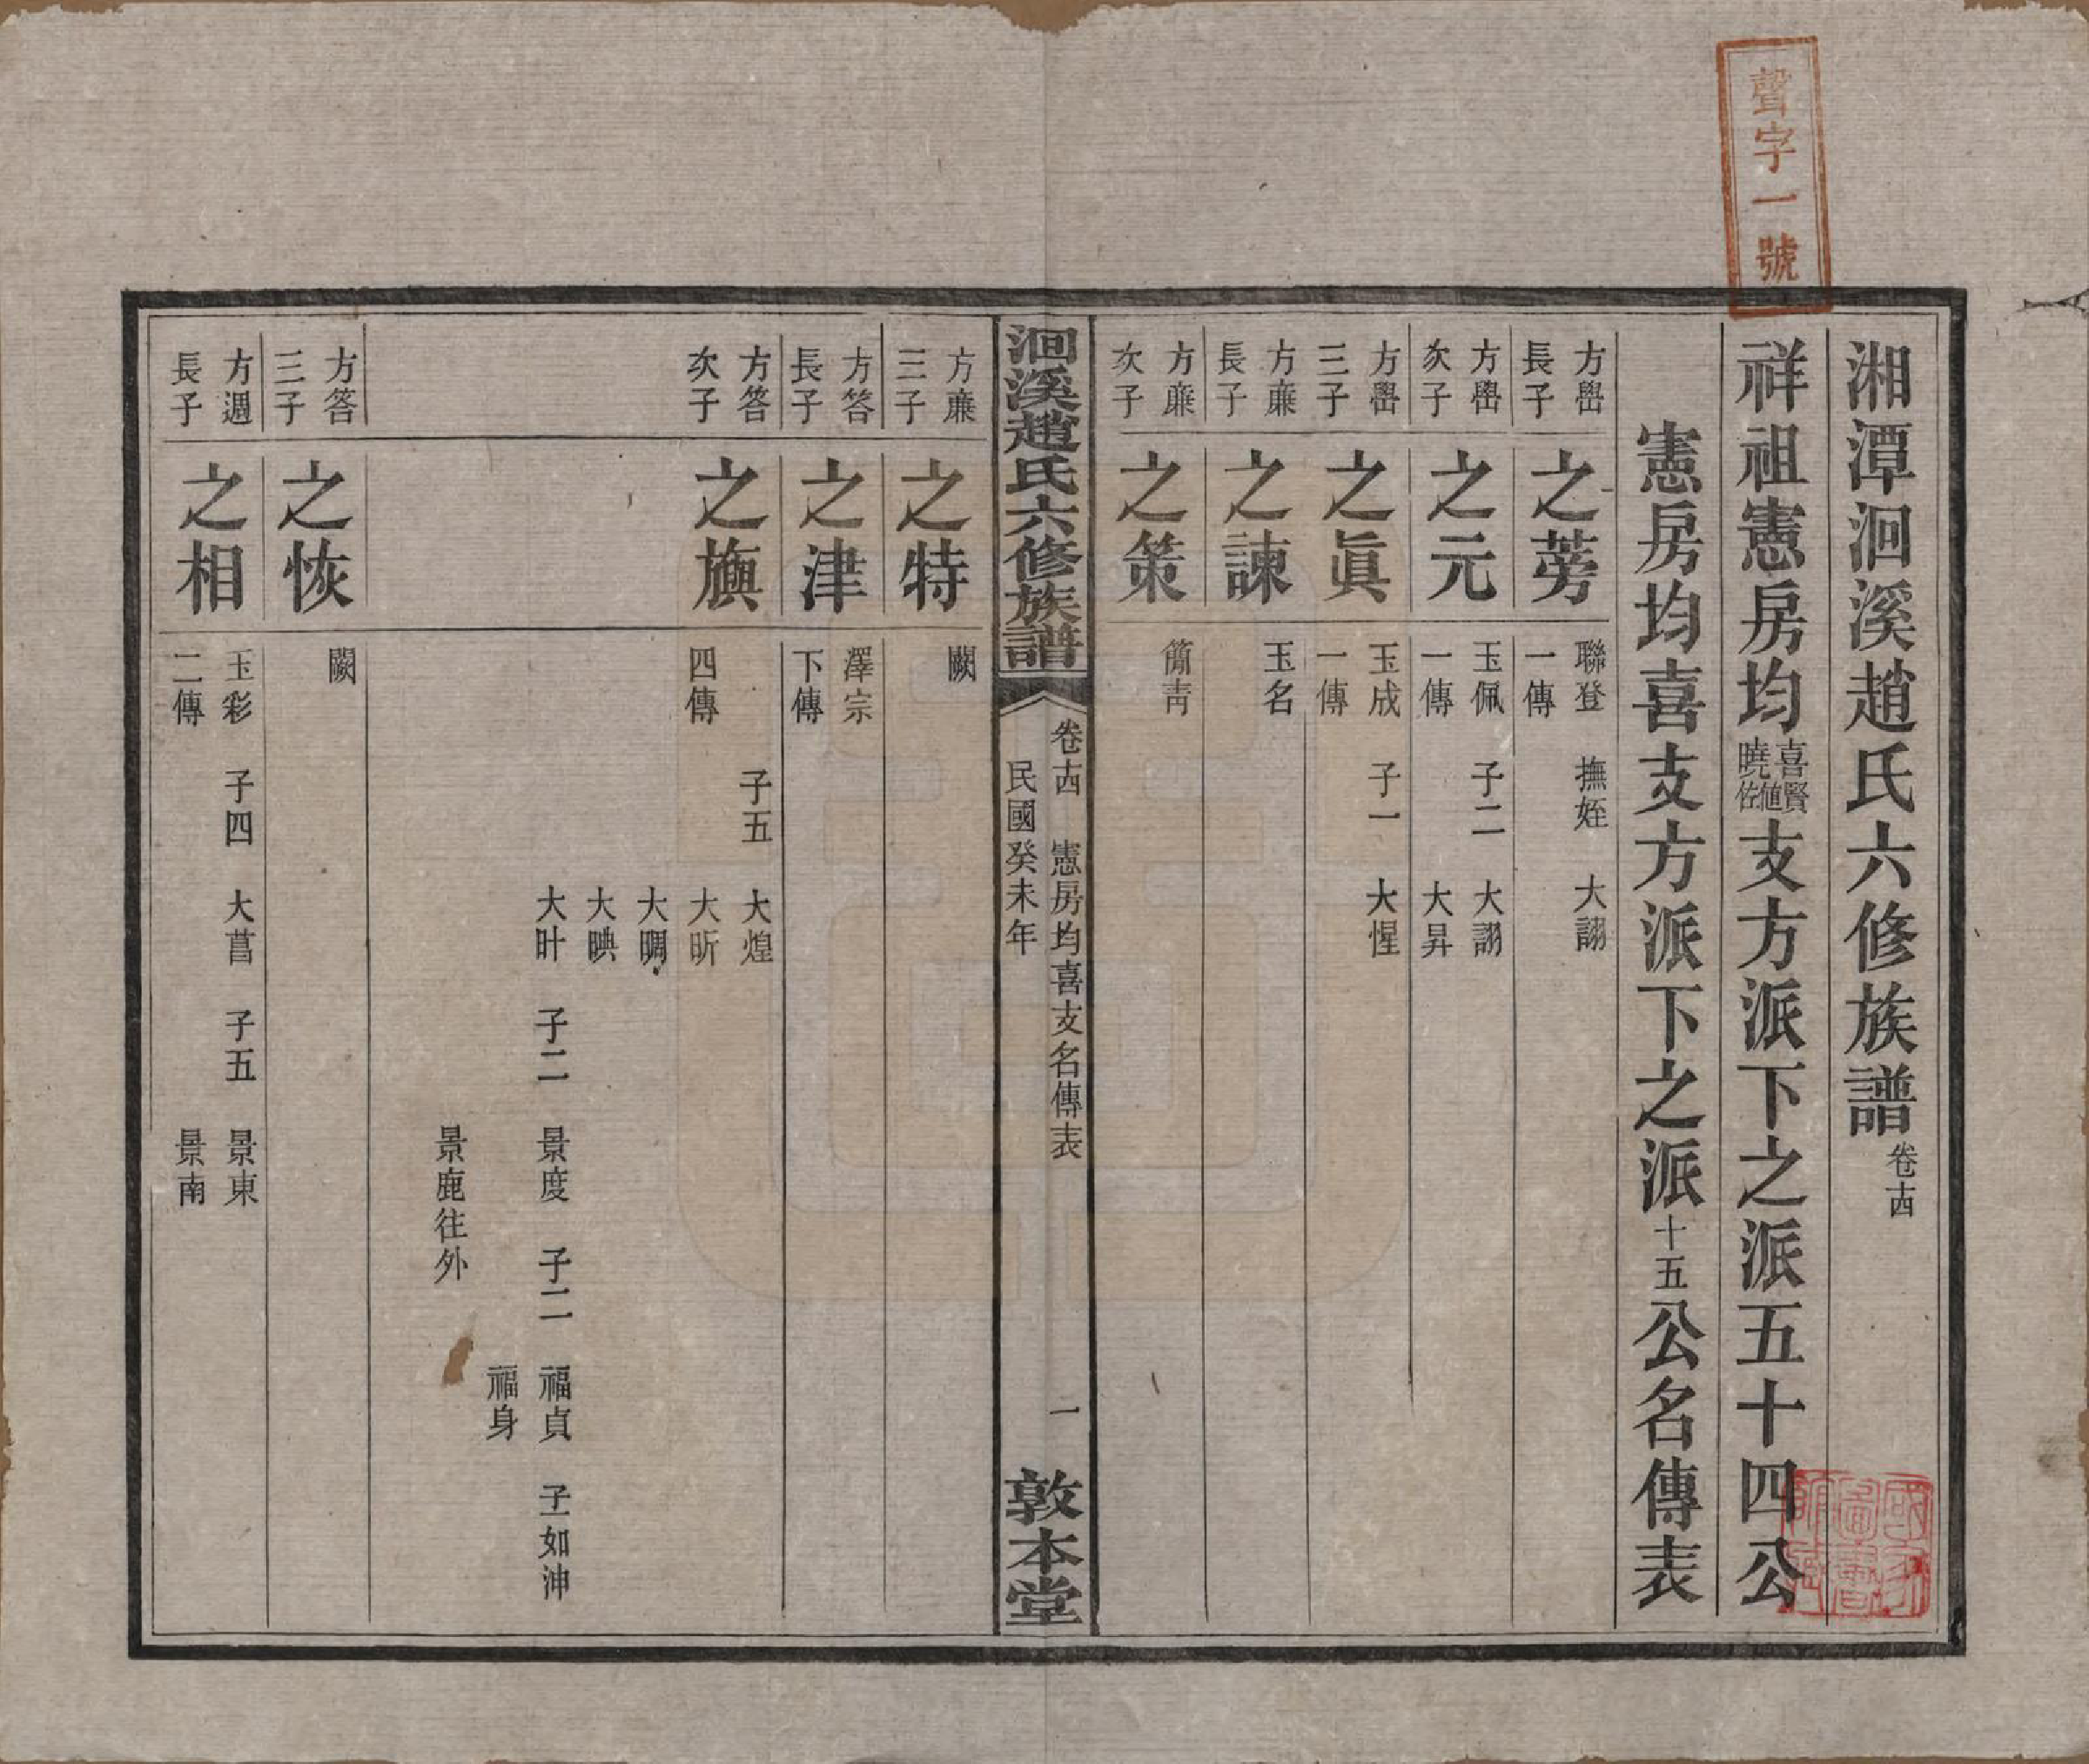 聲字一號
湘潭洄溪趙氏六修族譜卷十四
祥祖憲房均喜賢曉佐値支方派下之派五十四公
憲房均喜支方派下之派十五公名傳表
方礨長子 之蒡 聯登一傳 撫姪 大詡
方礨次子 之元 玉佩一傳 子二 大詡
大昇
方礨三子 之眞 玉成一傳 子一 大惺
方廉長子 之諫 玉名
方廉次子 之策 簡靑
洄溪趙氏六修族譜 卷十四 憲房均喜支名傳表 一
民國癸未年 敦本堂
方廉三子 之特 闕
方答長子 之津 澤宗下傳
方答次子 之旟 四傳 子五 大煌
大昕
大晭
大映
大叶 子二 景度 子二 福貞 子一 如沖
福身
景鹿往外
方答三子 之恢 闕
方週長子 之相 玉彩二傳 子四 大菖 子五 景東
景南